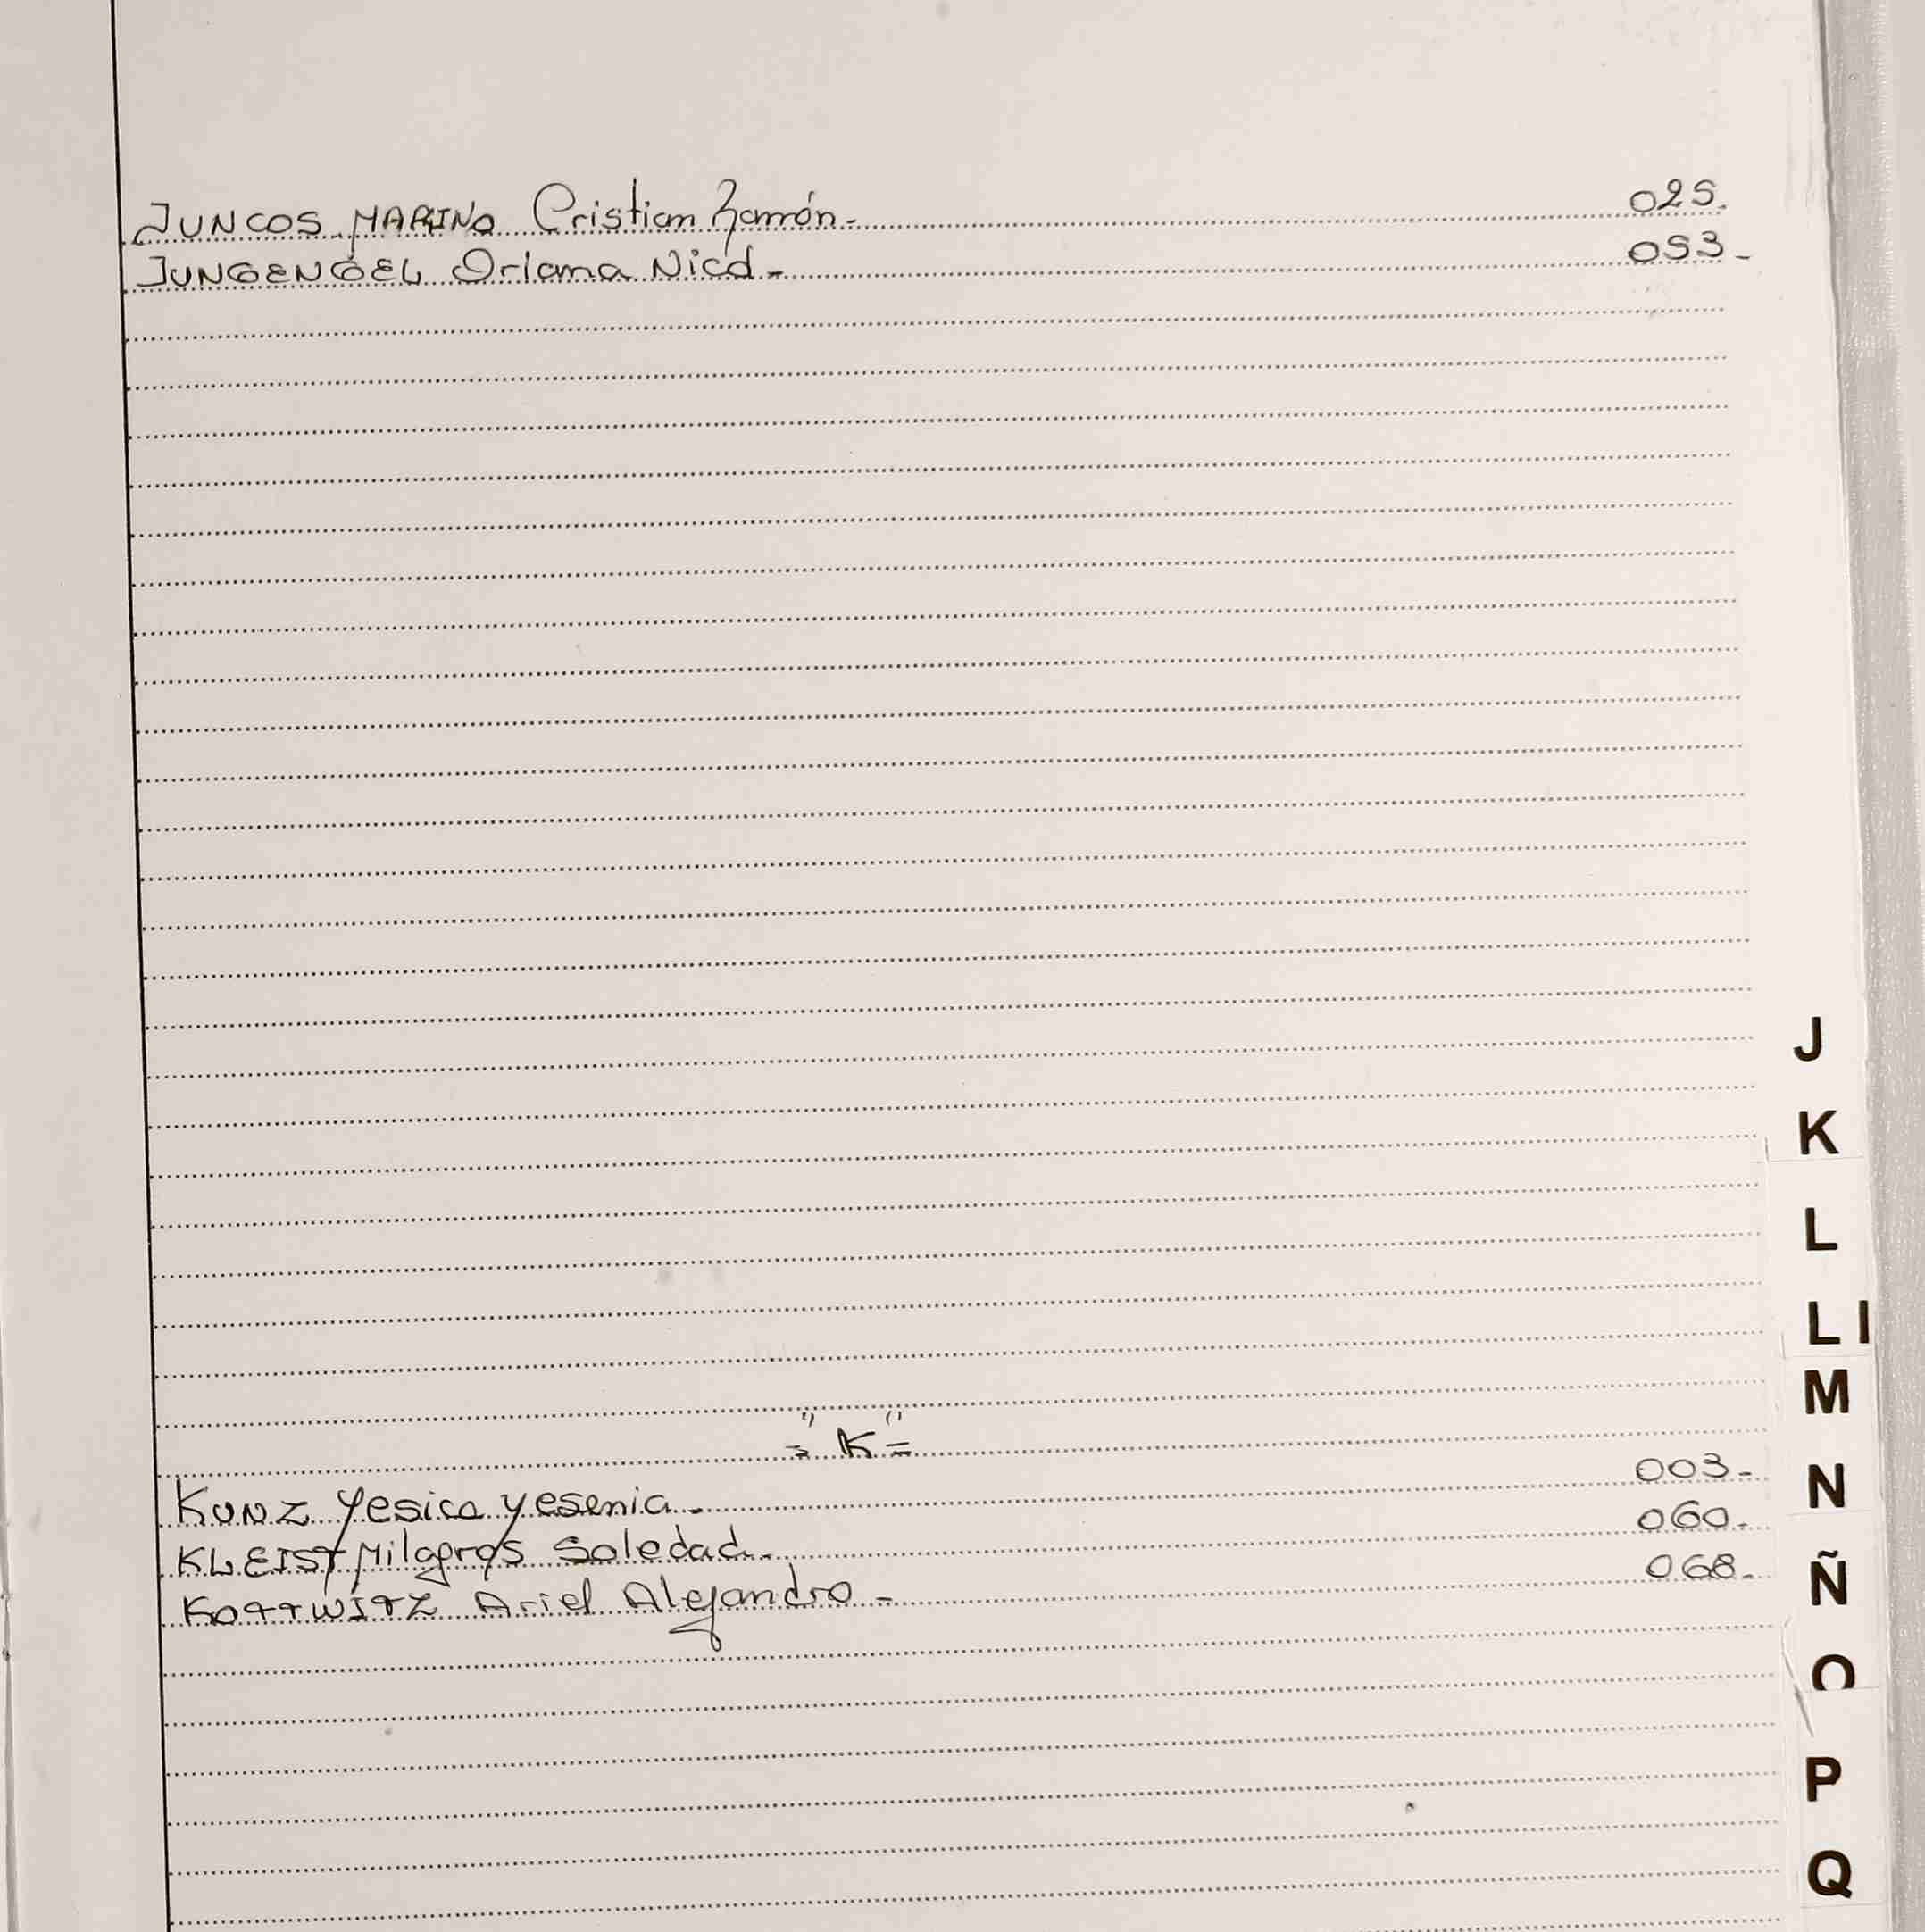 JUNCOS MARINO Cristian Ramón - 025.
JUNGENGEL Oriana Nicol - 053-
J
K
L
Ll
M
="K"=
KUNZ Yesica Yesenia - 003-
N
KLEIST Milagros Soledad - 060.
KOTTWITZ Ariel Alejandro - 068.
Ñ
O
P
Q